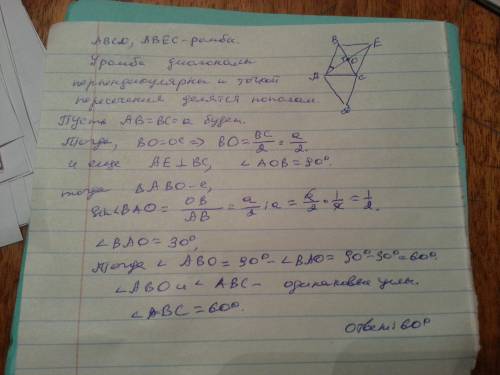 ABCD, ABEC - ромбы.
У ромба диагонали
перпендикулярны и точкой
пересечения делятся пополам.
Пусть AB=BC=a будет.
Тогда, BO=OC => BO = BC/2 = a/2.
и еще AE⊥BC, ∠AOB=90°.
тогда ΔABO-е,
sin∠BAO = OB/AB = a/2 : a = a/2 * 1/a = 1/2.
∠BAO=30°,
Тогда ∠ABO=90°-∠BAO=90°-30°=60°
∠ABO и ∠ABC- одинаковые углы.
∠ABC=60°.
ответ: 60°
B
E
O
A
C
D